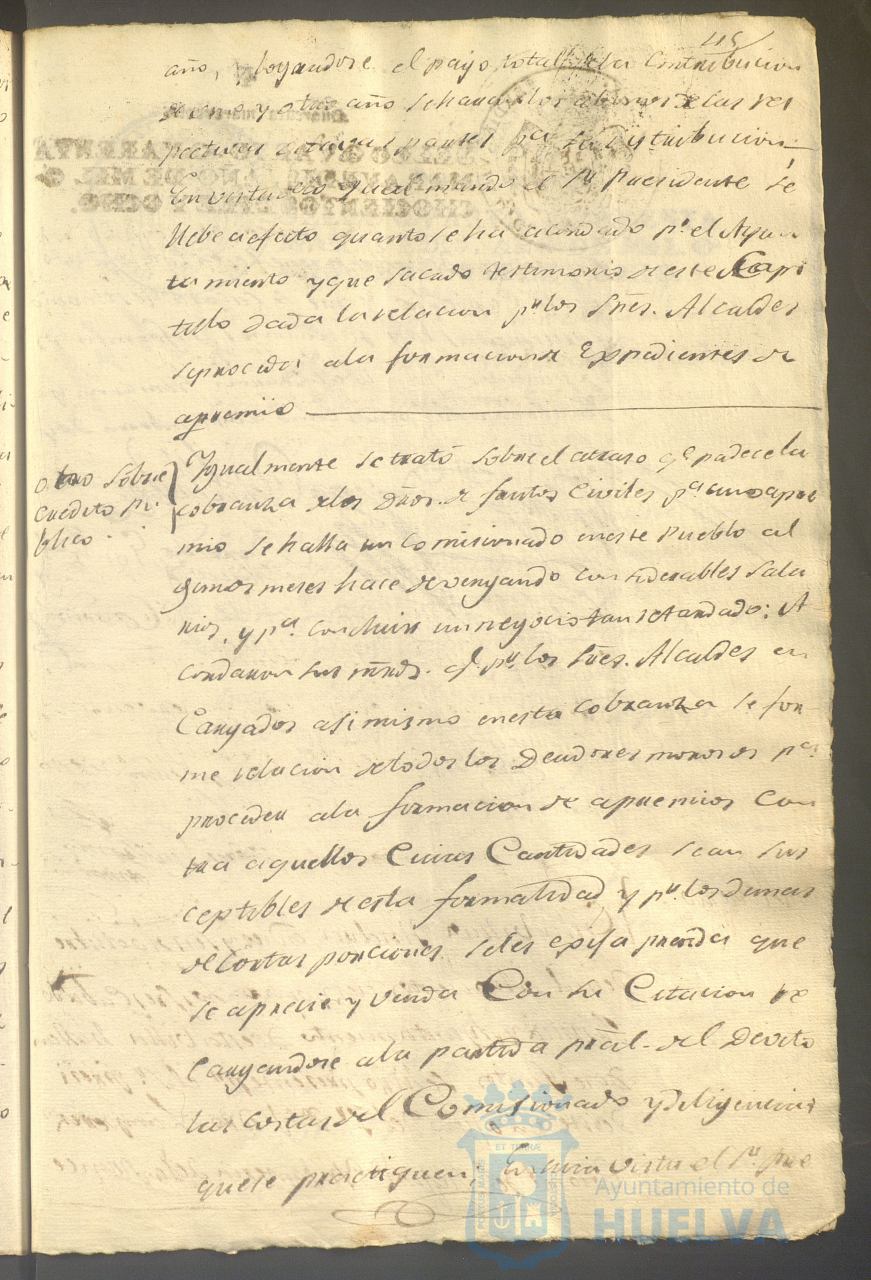 115
año, lograndose el pago total de la Contribucion
de este y otro año se haran los abonos de las res
pectivas
En vista de lo qual mandó el Sr. Presidente se
llebe a efecto quanto se ha acordado pr. el Ayun
tamiento y que sacado testimonio de este Capi
tulo dada la relacion pr. los Sres. Alcaldes
se proceda a la formacion de Expedientes de
apremio
otro sobre
credito pu.
blico.
Igualmente se trató sobre el atraso qe. padece la
cobranza de los Dros. de frutos Civiles pa. cuio apre
mio se halla un comisionado en este Pueblo al
gunos meses hace devengando considerables Sala
rios, y pa. concluir un negocio tan retardado: A
cordaron sus mrds. qe. pr. los Sres. Alcaldes en
cargados asi mismo en esta cobranza se for
me relacion de todos los Deudores morosos pa.
proceder a la formacion de apremios con
tra aquellos cuias Cantidades sean sus
ceptibles de esta formalidad y pr. los demas
de cortas porciones se les exija prenda que
se aprecie y venda con su Citacion re
cargandose a la partida pral. del Devito
las costas del Comisionado y diligencias
que se practiquen; En cuia vista el Sr. Pre
Ayuntamiento de
HUELVA